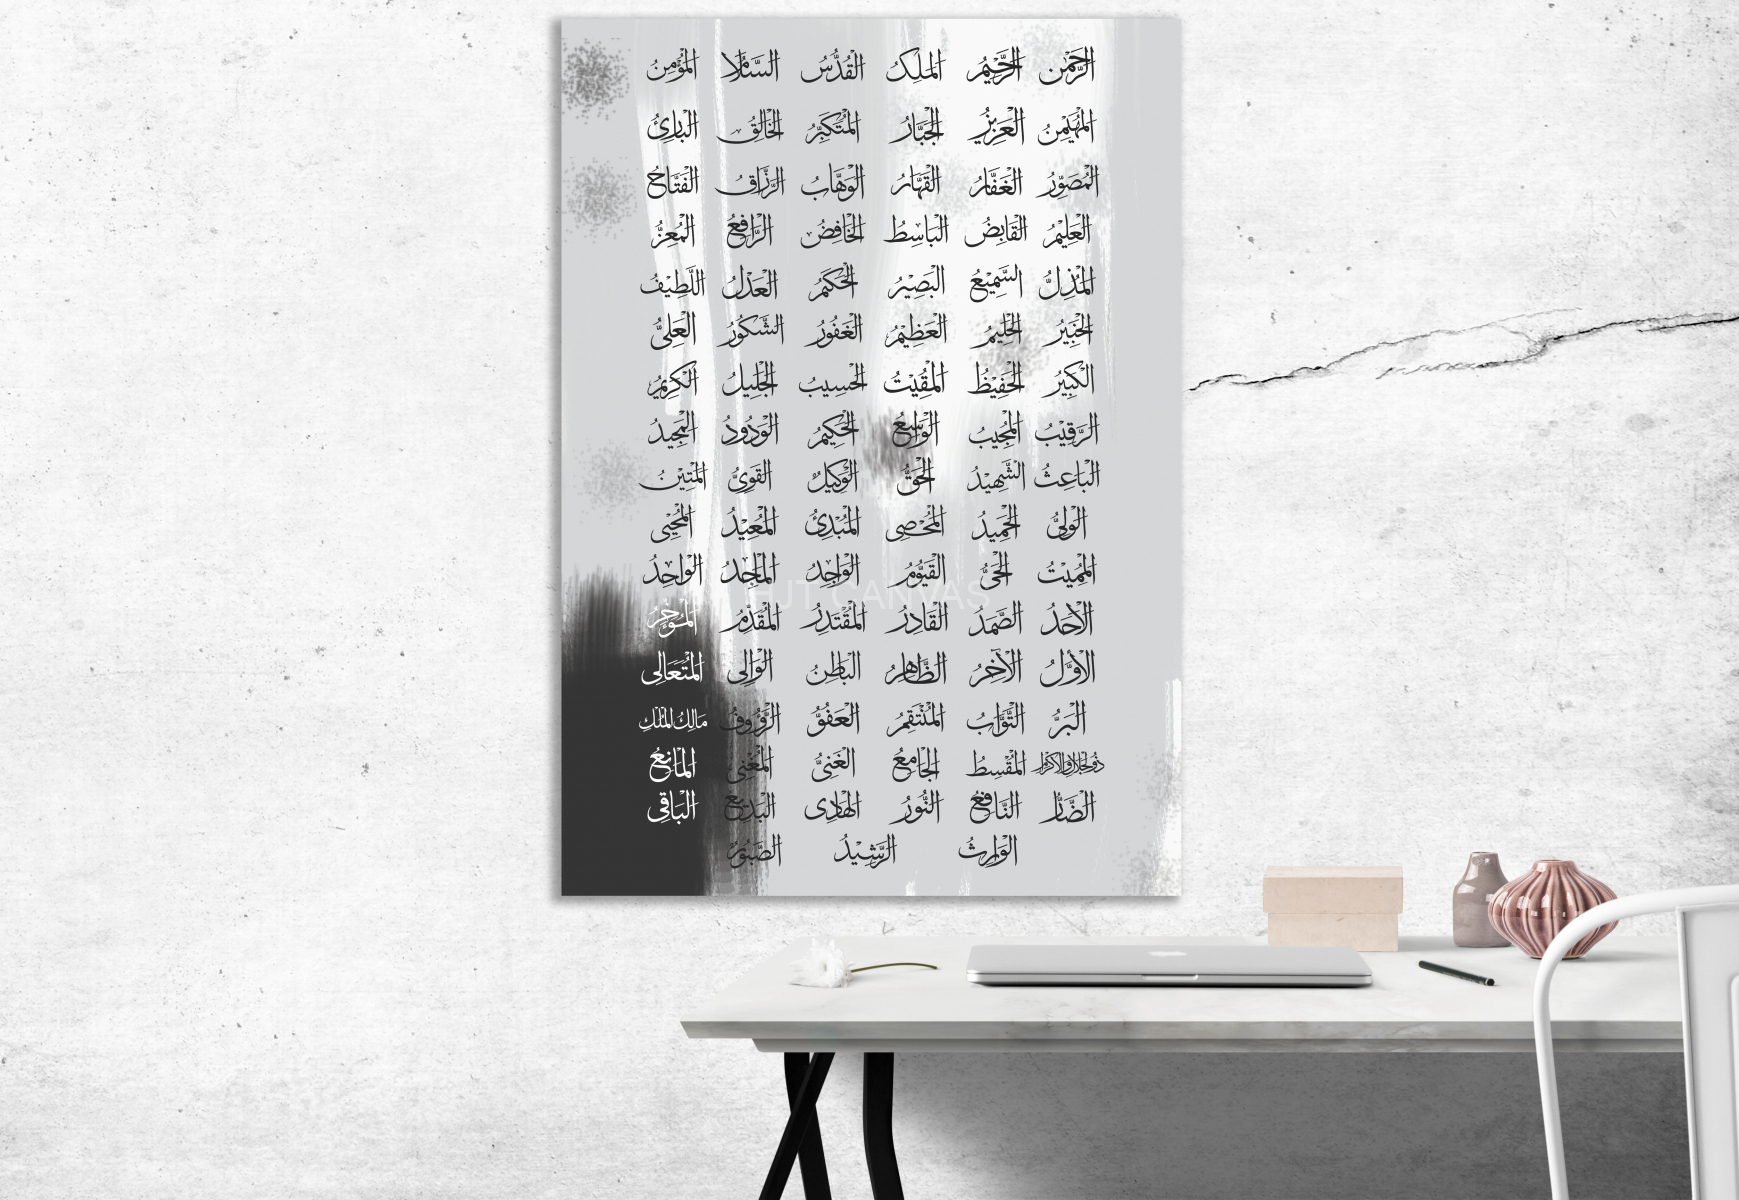 الرَّحْمٰن الرَّحِيْمُ الْمَلِكُ الْقُدُّسُ السَّلَامُ الْمُؤْمِنُ
الْمُهَيْمِنُ الْعَزِيْزُ الْجَبَّارُ الْمُتَكَبِّرُ الْخَالِقُ الْبَارِئُ
الْمُصَوِّرُ الْغَفَّارُ الْقَهَّارُ الْوَهَّابُ الرَّزَّاقُ الْفَتَّاحُ
الْعَلِيْمُ الْقَابِضُ الْبَاسِطُ الْخَافِضُ الرَّافِعُ الْمُعِزُّ
الْمُذِلُّ السَّمِيْعُ الْبَصِيْرُ الْحَكَمُ الْعَدْلُ اللَّطِيْفُ
الْخَبِيْرُ الْحَلِيْمُ الْعَظِيْمُ الْغَفُوْرُ الشَّكُوْرُ الْعَلِيُّ
الْكَبِيْرُ الْحَفِيْظُ الْمُقِيْتُ الْحَسِيبُ الْجَلِيلُ الْكَرِيمُ
الرَّقِيْبُ الْمُجِيْبُ الْوَاسِعُ الْحَكِيْمُ الْوَدُوْدُ الْمَجِيدُ
الْبَاعِثُ الشَّهِيْدُ الْحَقُّ الْوَكِيْلُ الْقَوِيُّ الْمَتِيْنُ
الْوَلِيُّ الْحَمِيدُ الْمُحْصِي الْمُبْدِئُ الْمُعِيْدُ الْمُحْيِي
الْمُمِيْتُ الْحَيُّ الْقَيُّوْمُ الْوَاجِدُ الْمَاجِدُ الْوَاحِدُ
الْأَحَدُ الصَّمَدُ الْقَادِرُ الْمُقْتَدِرُ الْمُقَدِّمُ الْمُؤَخِّرُ
الْأَوَّلُ الْآخِرُ الظَّاهِرُ الْبَاطِنُ الْوَالِي الْمُتَعَالِي
الْبَرُّ التَّوَّابُ الْمُنْتَقِمُ الْعَفُوُّ الرَّؤُوفُ مَالِكُ الْمُلْكِ
ذُو الْجَلَالِ وَالْإِكْرَام الْمُقْسِطُ الْجَامِعُ الْغَنِيُّ الْمُغْنِي الْمَانِعُ
الضَّارُّ النَّافِعُ النُّوْرُ الْهَادِي الْبَدِيْعُ الْبَاقِي
الْوَارِثُ الرَّشِيْدُ الصَّبُوْرُ
HJT CANVAS